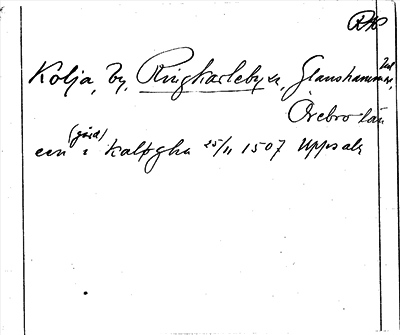 RK
Kolja, by, Ringkarleby sn, Glanshammar hd,
Örebro län
een (gård) i Kalffgha 25/11 1507 Uppsala